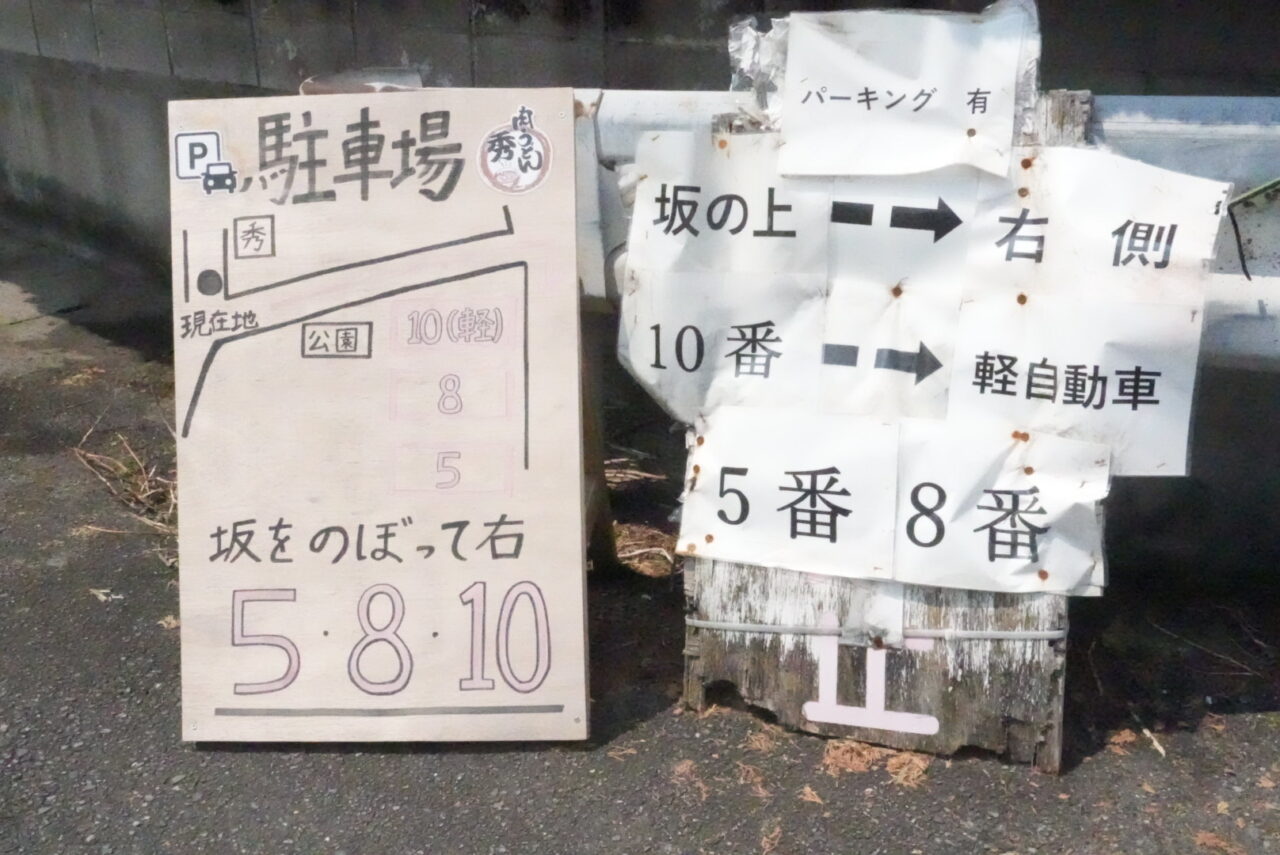 P 駐車場
肉うどん
秀
秀
現在地
公園
10(軽)
8
5
坂をのぼって右
5・8・10
パーキング 有
坂の上 右側
10番 軽自動車
5番 8番